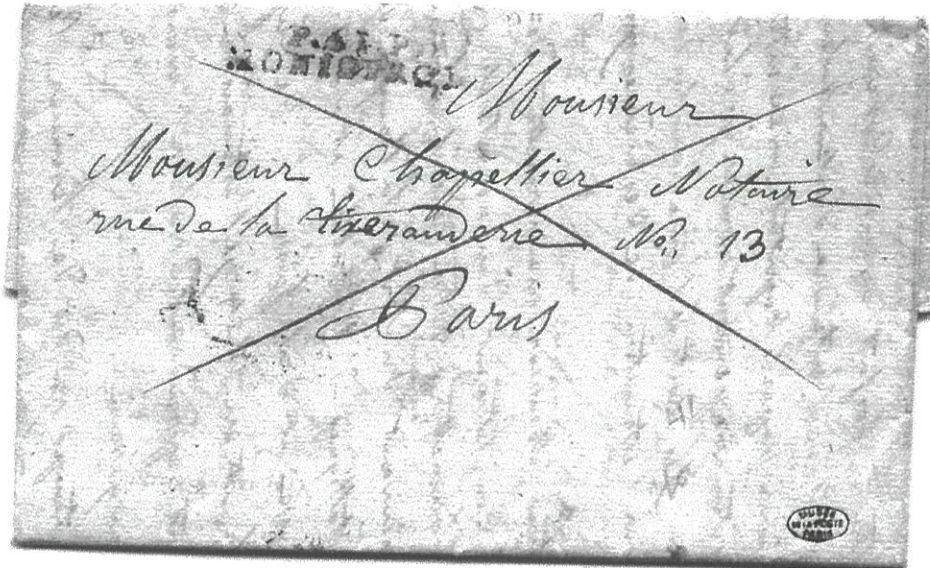 P.41.P.
MONISTROL
Monsieur
Monsieur Chapellier Notaire
rue de la tixeranderie No. 13
Paris
MUSÉE
DE LA POSTE
PARIS